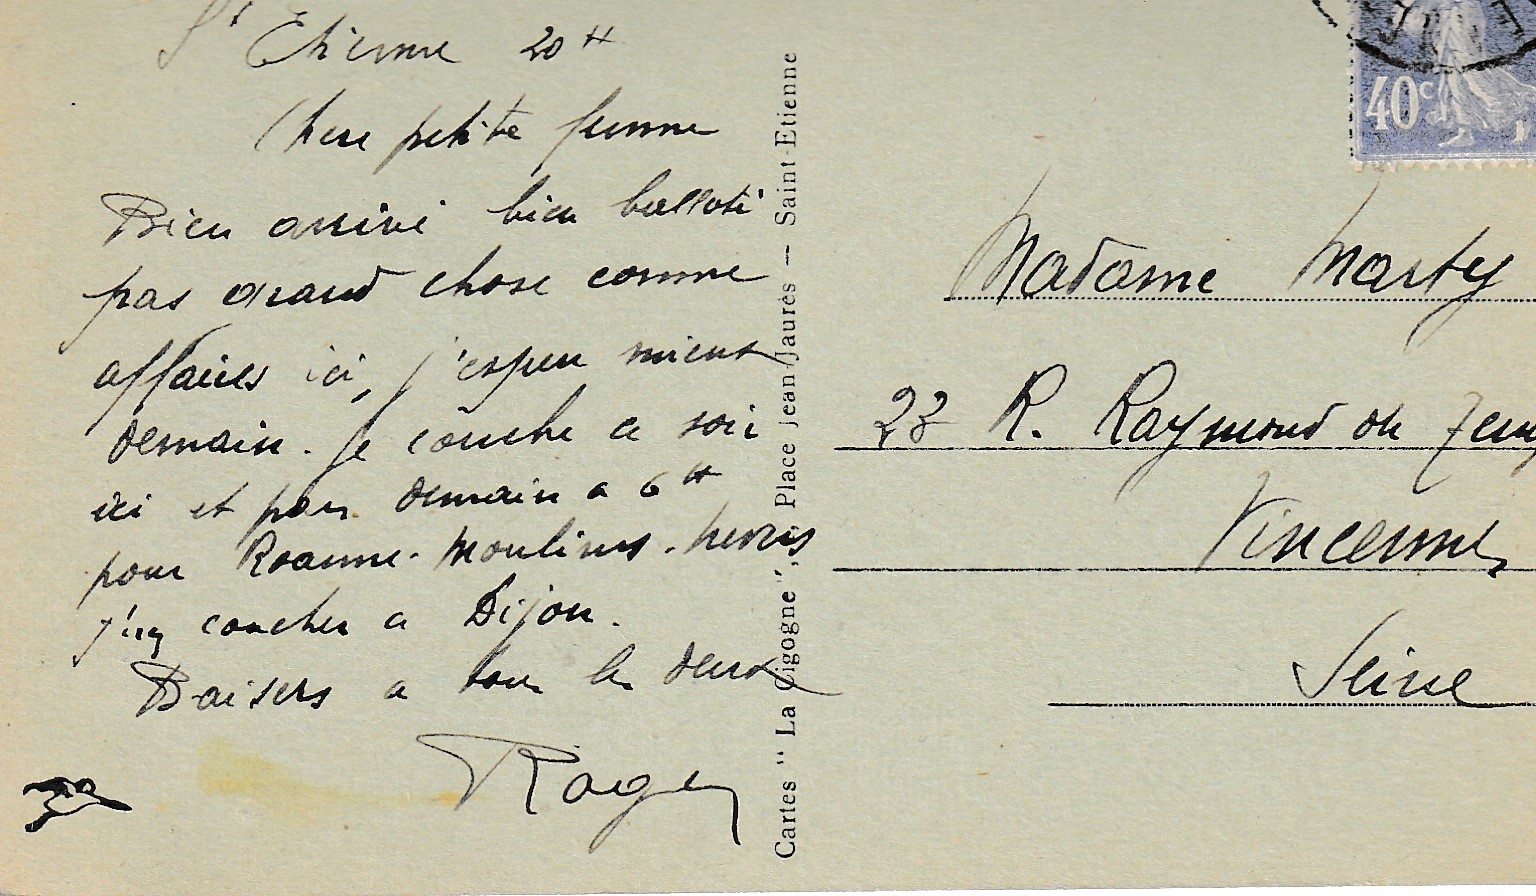 St Etienne 20 H
Chere petite femme
Bien arrivé bien balloté
pas grand chose comme
affaires ici, j'espere mieux
demain. Je couche ce soir
ici et pars demain a 6 H
pour Roanne. Moulins. Nevers
j'irai coucher a Dijon.
Baisers a tous les deux
Roger
Cartes "La Cigogne", Place Jean-Jaurès — Saint-Etienne
40 c
Madame Marty
23 R. Raymond du
Vincennes
Seine